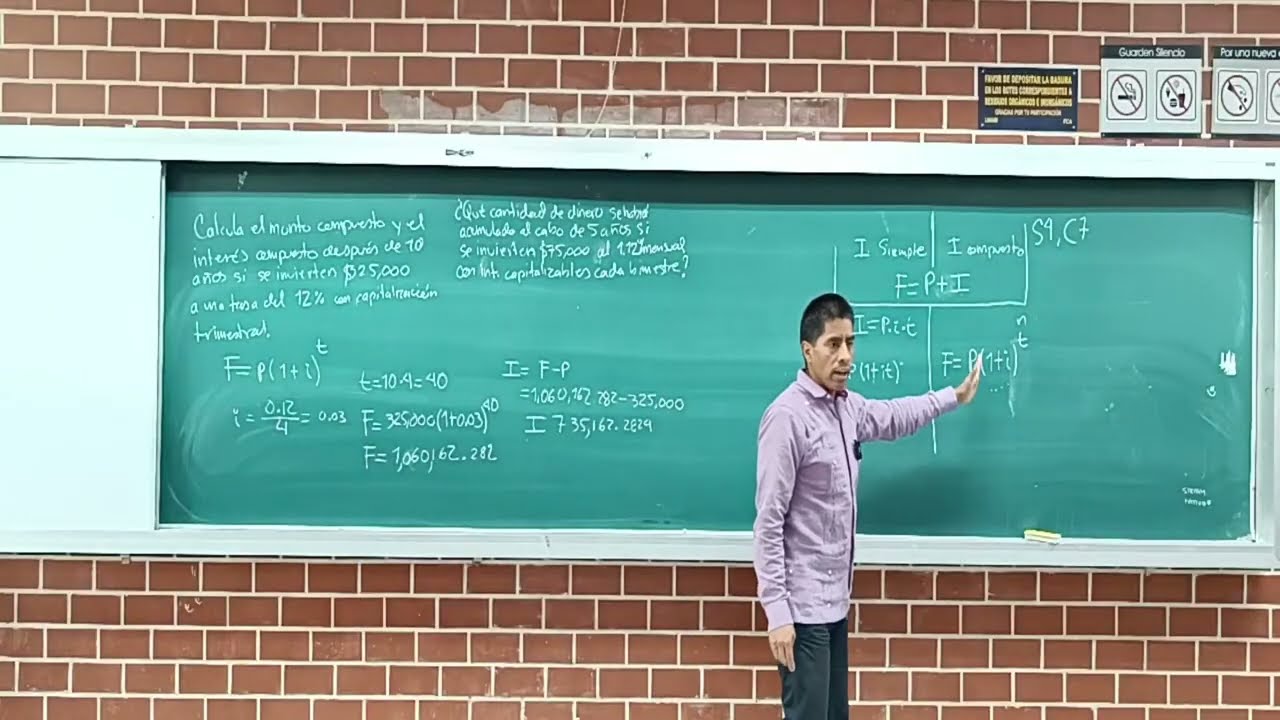 Guarden Silencio
Por una nueva
FAVOR DE DEPOSITAR LA BASURA
EN LOS BOTES CORRESPONDIENTES A
RESIDUOS ORGÁNICOS E INORGÁNICOS
GRACIAS POR TU PARTICIPACIÓN
FCA
Calcula el monto compuesto y el
interés compuesto después de 10
años si se invierten $325,000
a una tasa del 12% con capitalización
trimestral.
F=P(1+i)^t
i=0.12/4=0.03
t=10·4=40
F=325,000(1+0.03)^40
F=1,060,162.282
I=F-P
=1,060,162.282-325,000
I 735,162.2829
¿Qué cantidad de dinero se habrá
acumulado al cabo de 5 años si
se invierten $75,000 al 1.12% mensual
con int. capitalizables cada bimestre?
I Simple
I compuesto
F=P+I
I=P·i·t
(1+it)
n
F=P(1+i)^t
S4,C7